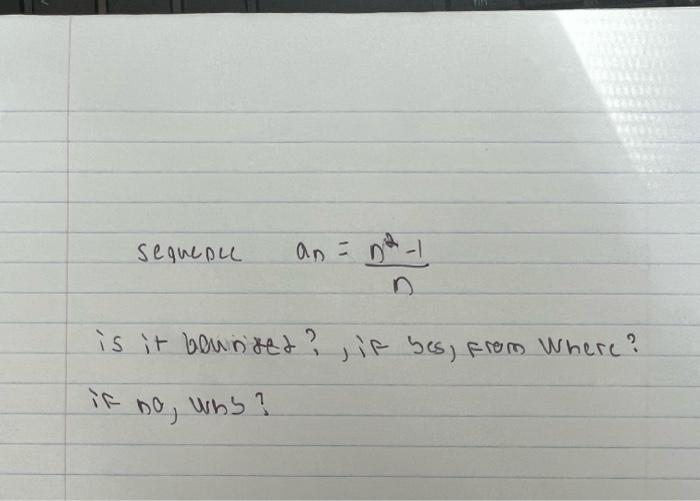 sequence an = n²-1/n
is it bounded?, if yes, from where?
if no, why?